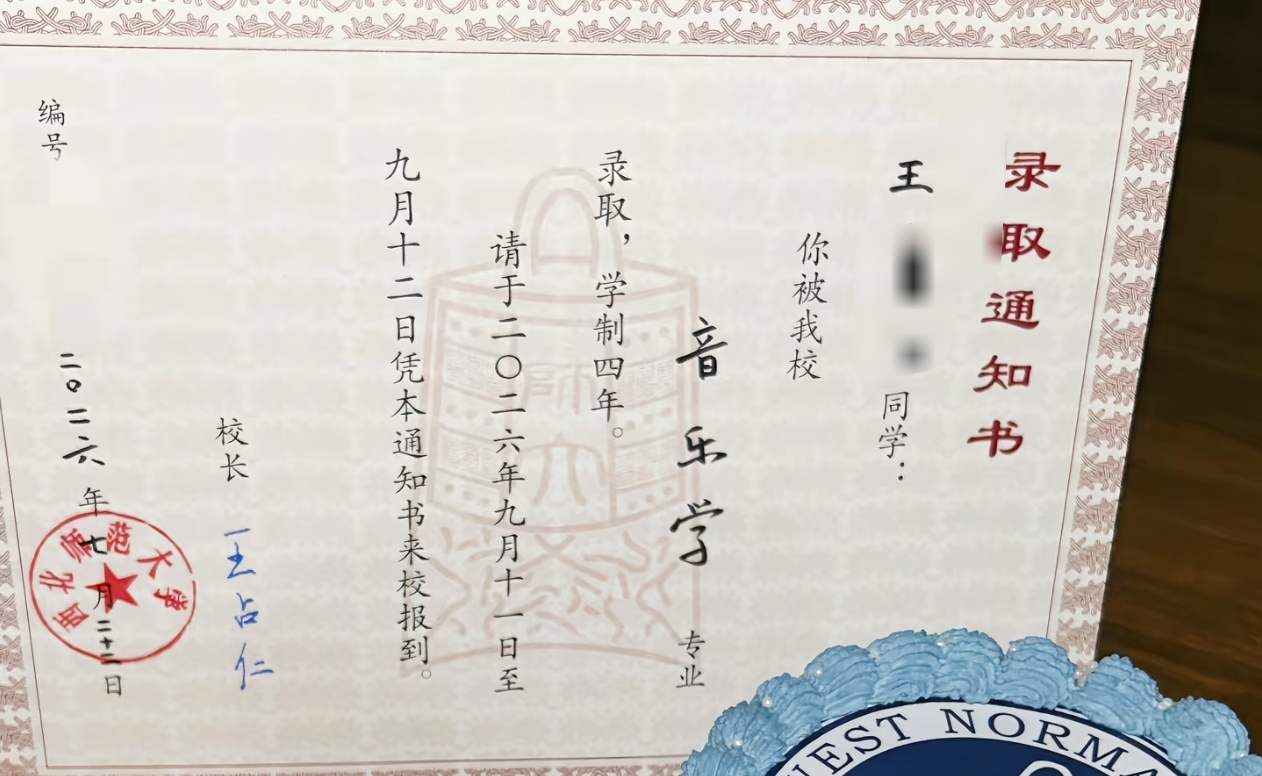 录取通知书
王
同学：
你被我校
音乐学 专业
录取，学制四年。
请于二〇二六年九月十一日至
九月十二日凭本通知书来校报到。
校长 王占仁
二〇二六年七月二十二日
西北师范大学
编号
師大
WEST NORMA